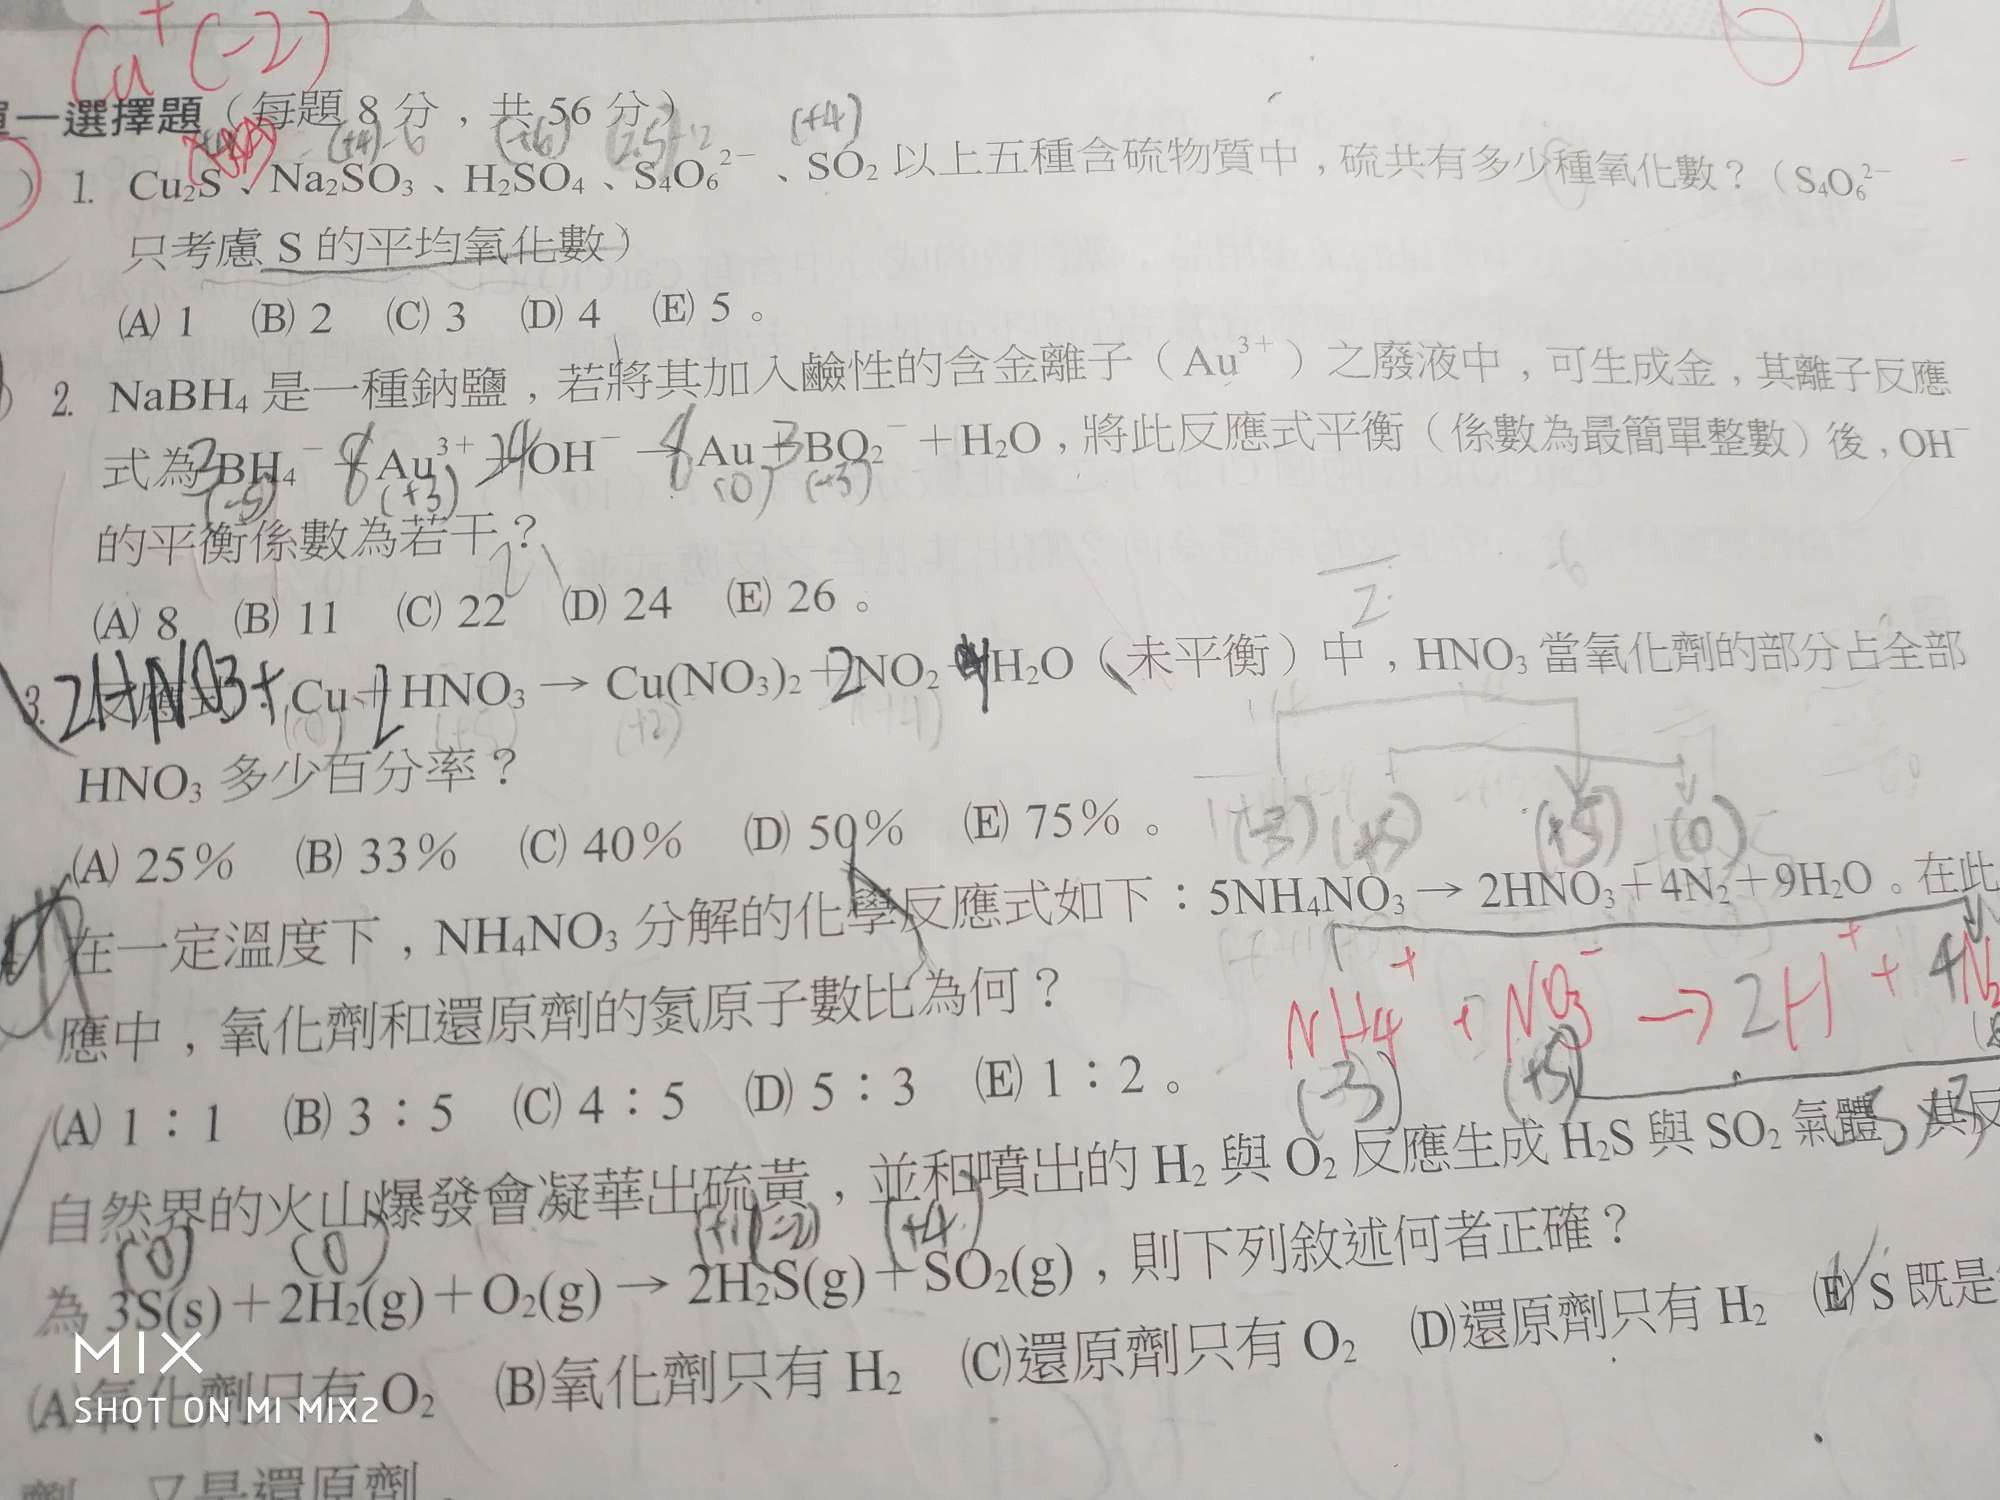 Cu⁺(-2)
單一選擇題（每題 8 分，共 56 分）
(+4) (+6) (2.5) (+4)
1. Cu₂S、Na₂SO₃、H₂SO₄、S₄O₆²⁻、SO₂ 以上五種含硫物質中，硫共有多少種氧化數？（S₄O₆²⁻
只考慮 S 的平均氧化數）
(A) 1 (B) 2 (C) 3 (D) 4 (E) 5 。
2. NaBH₄ 是一種鈉鹽，若將其加入鹼性的含金離子（Au³⁺）之廢液中，可生成金，其離子反應
式為 3BH₄⁻ + 8Au³⁺ + OH⁻ → 8Au + 3BO₂⁻ + H₂O，將此反應式平衡（係數為最簡單整數）後，OH⁻
(-5) (+3) (0) (+3)
的平衡係數為若干？
(A) 8 (B) 11 (C) 22 (D) 24 (E) 26 。
3. 2HNO₃+ 反應式：Cu + 2HNO₃ → Cu(NO₃)₂ + 2NO₂ + 4H₂O（未平衡）中，HNO₃ 當氧化劑的部分占全部
(0) (+5) (+2) (+4)
HNO₃ 多少百分率？
(A) 25％ (B) 33％ (C) 40％ (D) 50％ (E) 75％ 。
(-3) (+5) (+5) (0)
在一定溫度下，NH₄NO₃ 分解的化學反應式如下：5NH₄NO₃ → 2HNO₃ + 4N₂ + 9H₂O。在此
NH4⁺ + NO3⁻ → 2H⁺ + 4N₂
(-3) (+5)
應中，氧化劑和還原劑的氮原子數比為何？
(A) 1：1 (B) 3：5 (C) 4：5 (D) 5：3 (E) 1：2 。
自然界的火山爆發會凝華出硫黃，並和噴出的 H₂ 與 O₂ 反應生成 H₂S 與 SO₂ 氣體，其反
(0) (0) (+1)(-2) (+4)
為 3S(s) + 2H₂(g) + O₂(g) → 2H₂S(g) + SO₂(g)，則下列敘述何者正確？
(A)氧化劑只有 O₂ (B)氧化劑只有 H₂ (C)還原劑只有 O₂ (D)還原劑只有 H₂ (E) S 既是
劑，又是還原劑
MIX
SHOT ON MI MIX2